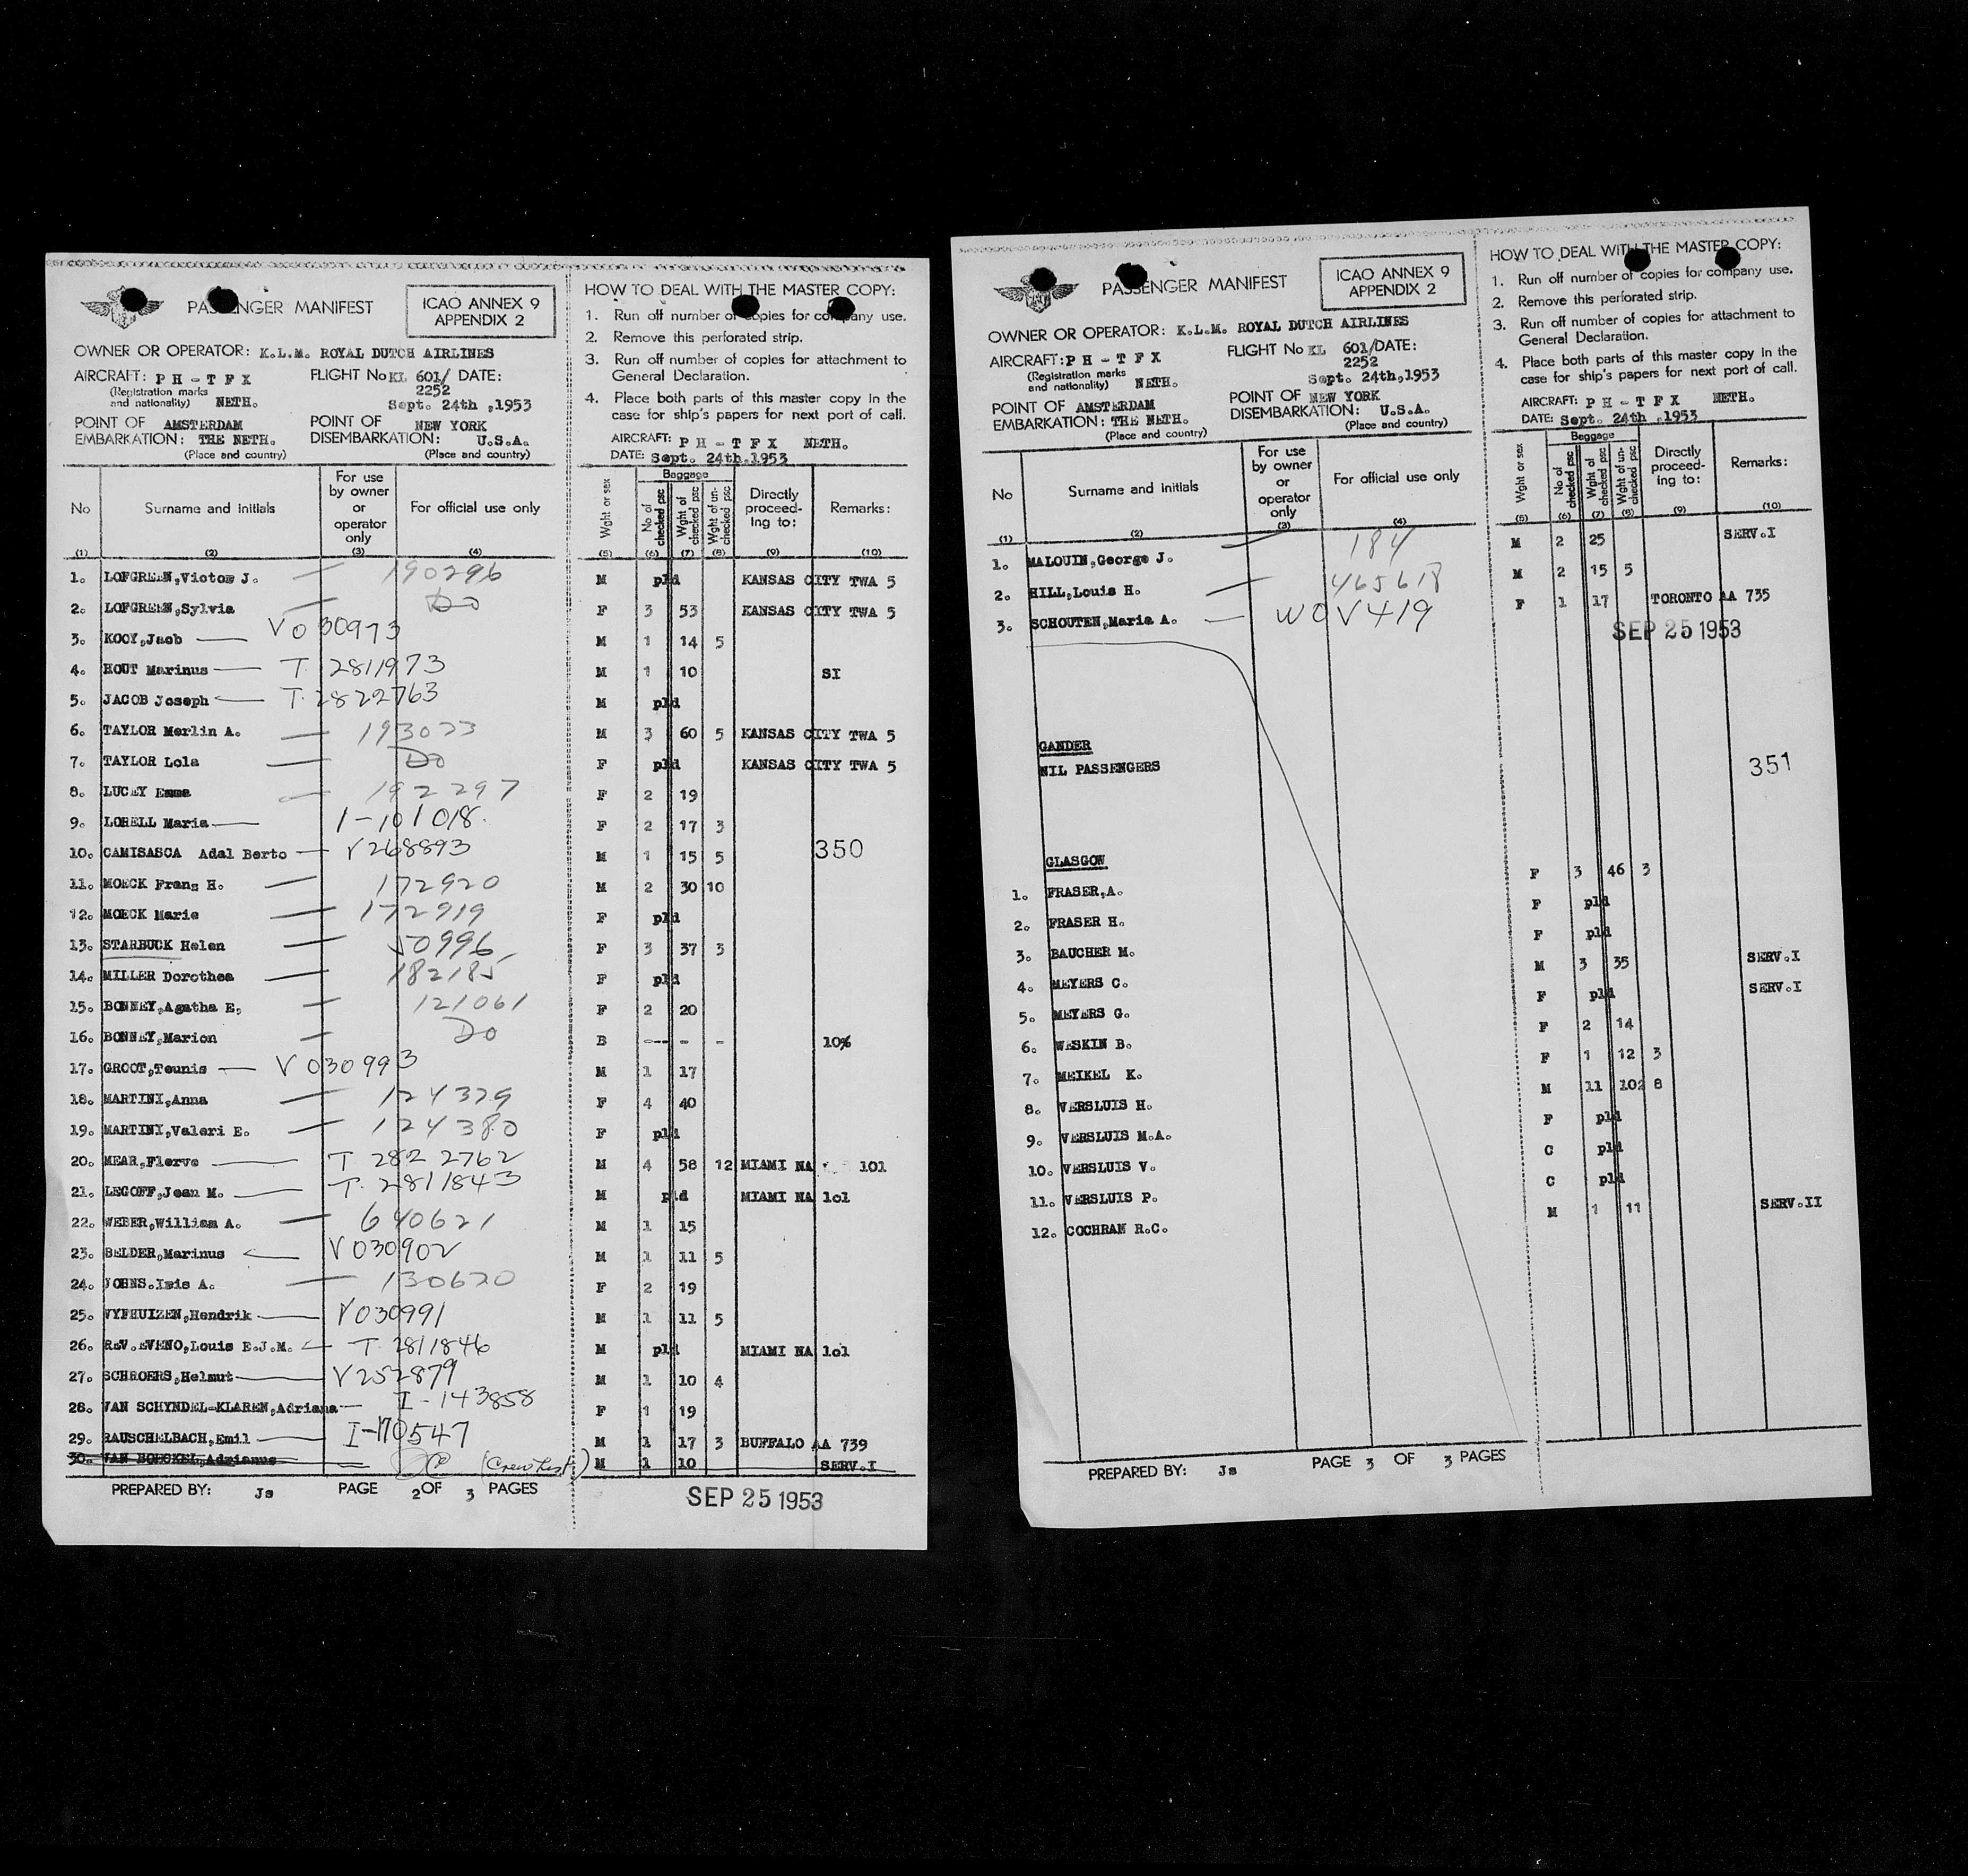 PASSENGER MANIFEST
ICAO ANNEX 9
APPENDIX 2
OWNER OR OPERATOR: K.L.M. ROYAL DUTCH AIRLINES
AIRCRAFT: P H - T F X FLIGHT No KL 601/ DATE:
(Registration marks 2252
and nationality) NETH. Sept. 24th ,1953
POINT OF AMSTERDAM POINT OF NEW YORK
EMBARKATION: THE NETH. DISEMBARKATION: U.S.A.
(Place and country) (Place and country)
HOW TO DEAL WITH THE MASTER COPY:
1. Run off number of copies for company use.
2. Remove this perforated strip.
3. Run off number of copies for attachment to
General Declaration.
4. Place both parts of this master copy in the
case for ship's papers for next port of call.
AIRCRAFT: P H - T F X NETH.
DATE: Sept. 24th.1953
No Surname and initials For use by owner or operator only For official use only Wght or sex Baggage No of checked psc Wght of checked psc Wght of un-checked psc Directly proceed-ing to: Remarks:
(1) (2) (3) (4) (5) (6) (7) (8) (9) (10)
1. LOFGREEN,Victow J. — 190296 M pld KANSAS CITY TWA 5
2. LOFGREEN,Sylvia — Do F 3 53 KANSAS CITY TWA 5
3. KOOY,Jacb — V030973 M 1 14 5
4. HOUT Marinus — T. 2811973 M 1 10 SI
5. JACOB Joseph — T. 2822763 M pld
6. TAYLOR Merlin A. — 193023 M 3 60 5 KANSAS CITY TWA 5
7. TAYLOR Lola — Do F pld KANSAS CITY TWA 5
8. LUCEY Emma — 192297 F 2 19
9. LORELL Maria — 1-101018. F 2 17 3
10. CAMISASCA Adal Berto — V268893 M 1 15 5
350
11. MOECK Franz H. — 172920 M 2 30 10
12. MOECK Marie — 172919 F pld
13. STARBUCK Helen — 50996 F 3 37 3
14. MILLER Dorothea — 182185 F pld
15. BONNEY,Agatha E. — 121061 F 2 20
16. BONNEY,Marion — Do B --- - - 10%
17. GROOT,Teunis — V030993 M 1 17
18. MARTINI,Anna — 124379 F 4 40
19. MARTINI,Valeri E. — 124380 F pld
20. MEAR,Flerve — T 2822762 M 4 58 12 MIAMI NA 101
21. LEGOFF,Jean M. — T. 2811843 M pld MIAMI NA 101
22. WEBER,William A. — 640621 M 1 15
23. BELDER,Marinus — V030902 M 1 11 5
24. JOHNS.Isis A. — 130620 F 2 19
25. VYFHUIZEN,Hendrik — V030991 M 1 11 5
26. REV.EVENO,Louis E.J.M. — T. 2811846 M pld MIAMI NA 101
27. SCHROERS,Helmut — V252879 M 1 10 4
28. VAN SCHYNDEL-KLAREN,Adriana — I-143858 F 1 19
29. RAUSCHELBACH,Emil — I-170547 M 1 17 3 BUFFALO AA 739
30. VAN BOECKEL,Adrianus — (Crew List) M 1 10 SERV.I
PREPARED BY: Js PAGE 2 OF 3 PAGES
SEP 25 1953
PASSENGER MANIFEST
ICAO ANNEX 9
APPENDIX 2
OWNER OR OPERATOR: K.L.M. ROYAL DUTCH AIRLINES
AIRCRAFT: P H - T F X FLIGHT No KL 601/DATE:
(Registration marks 2252
and nationality) NETH. Sept. 24th,1953
POINT OF AMSTERDAM POINT OF NEW YORK
EMBARKATION: THE NETH. DISEMBARKATION: U.S.A.
(Place and country) (Place and country)
HOW TO DEAL WITH THE MASTER COPY:
1. Run off number of copies for company use.
2. Remove this perforated strip.
3. Run off number of copies for attachment to
General Declaration.
4. Place both parts of this master copy in the
case for ship's papers for next port of call.
AIRCRAFT: P H - T F X NETH.
DATE: Sept. 24th .1953
No Surname and initials For use by owner or operator only For official use only Wght or sex Baggage No of checked psc Wght of checked psc Wght of un-checked psc Directly proceed-ing to: Remarks:
(1) (2) (3) (4) (5) (6) (7) (8) (9) (10)
1. MALOUIN,George J. — 184 M 2 25 SERV.I
2. HILL,Louis H. — 465618 M 2 15 5
3. SCHOUTEN,Maria A. — WOV419 F 1 17 TORONTO AA 735
SEP 25 1953
GANDER
NIL PASSENGERS
351
GLASGOW
1. FRASER,A. F 3 46 3
2. FRASER H. F pld
3. BAUCHER M. F pld
4. MEYERS C. M 3 35 SERV.I
5. MEYERS G. F pld SERV.I
6. WESKIN B. F 2 14
7. MEIKEL K. F 1 12 3
8. VERSLUIS H. M 11 102 8
9. VERSLUIS M.A. F pld
10. VERSLUIS V. C pld
11. VERSLUIS P. C pld
12. COCHRAN R.C. M 1 11 SERV.II
PREPARED BY: Js PAGE 3 OF 3 PAGES